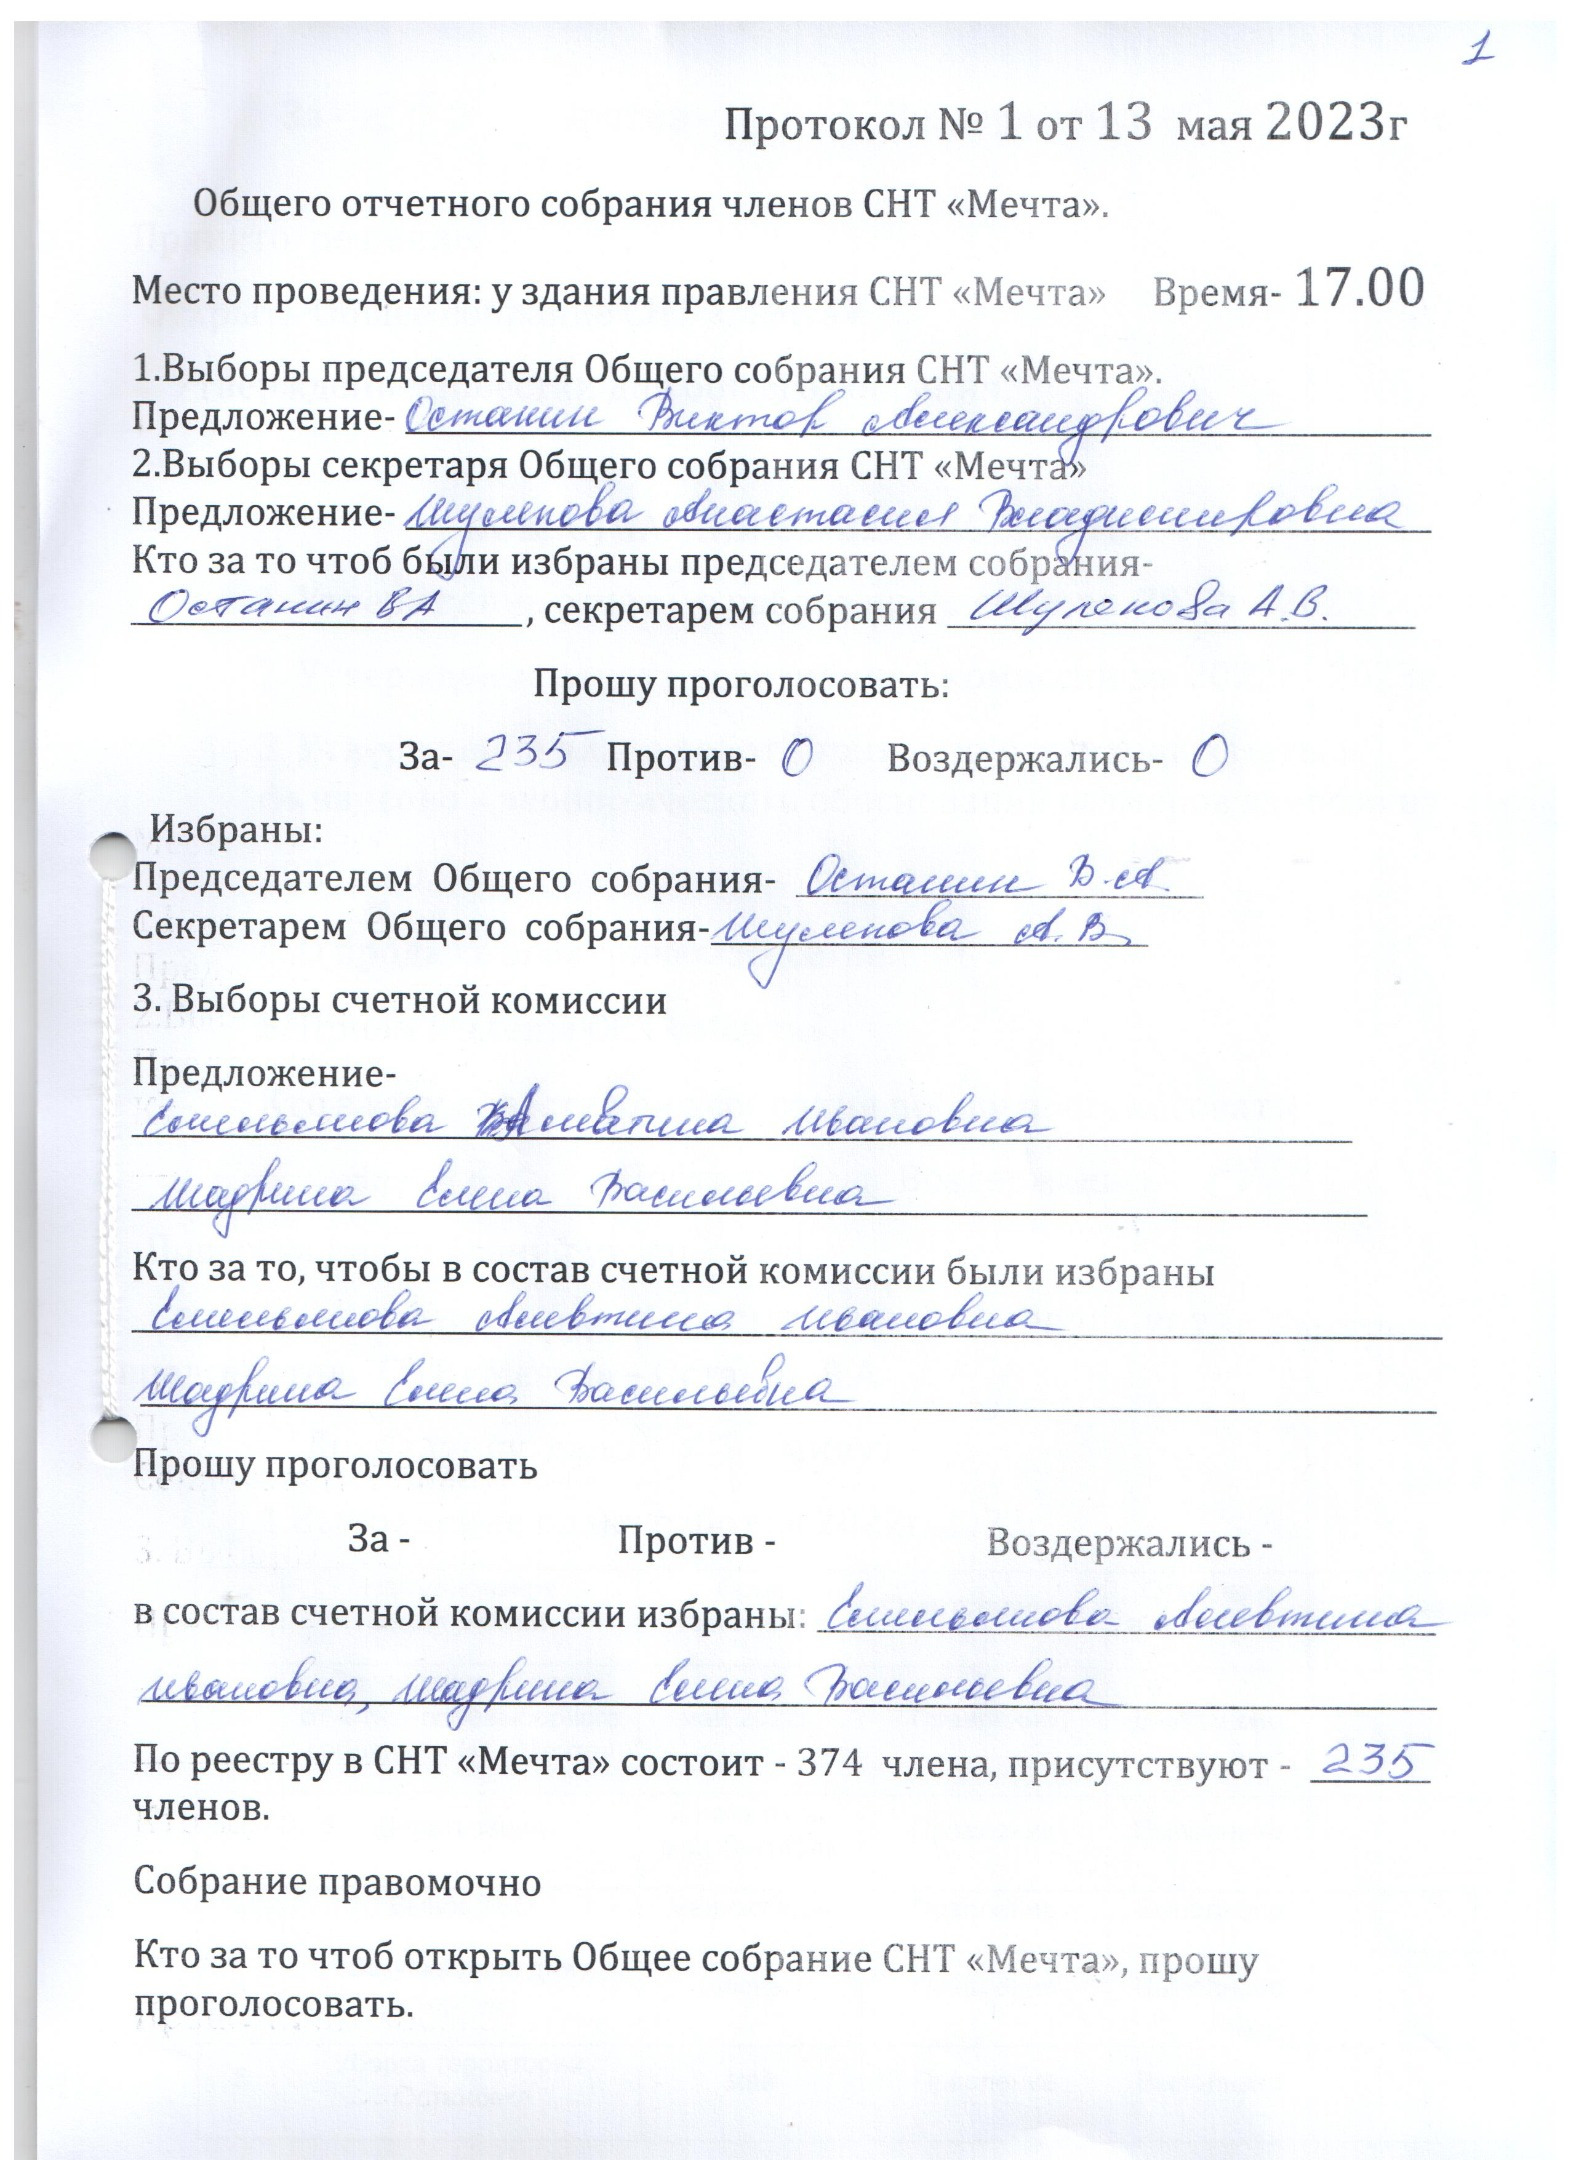 1
Протокол № 1 от 13 мая 2023г
Общего отчетного собрания членов СНТ «Мечта».
Место проведения: у здания правления СНТ «Мечта» Время- 17.00
1.Выборы председателя Общего собрания СНТ «Мечта».
Предложение- Останин Виктор Александрович
2.Выборы секретаря Общего собрания СНТ «Мечта»
Предложение- Шулепова Анастасия Владимировна
Кто за то чтоб были избраны председателем собрания-
Останин ВА, секретарем собрания Шулепова А.В.
Прошу проголосовать:
За- 235 Против- 0 Воздержались- 0
Избраны:
Председателем Общего собрания- Останин В.А.
Секретарем Общего собрания- Шулепова А.В.
3. Выборы счетной комиссии
Предложение-
Емельянова Алевтина Ивановна
Шадрина Елена Васильевна
Кто за то, чтобы в состав счетной комиссии были избраны
Емельянова Алевтина Ивановна
Шадрина Елена Васильевна
Прошу проголосовать
За - Против - Воздержались -
в состав счетной комиссии избраны: Емельянова Алевтина
Ивановна, Шадрина Елена Васильевна
По реестру в СНТ «Мечта» состоит - 374 члена, присутствуют - 235
членов.
Собрание правомочно
Кто за то чтоб открыть Общее собрание СНТ «Мечта», прошу
проголосовать.